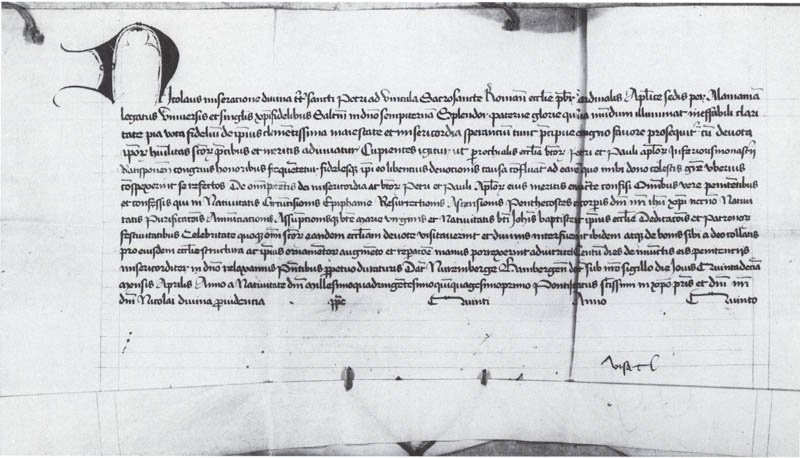 Nicolaus miseratione divina tt sancti Petri ad vincula Sacrosancte Roman ecclie pbr Cardinalis Aplice sedis per Alamaniã
legatus Universis et singlis xpifidelibus Saltm in dno sempiternã Splendor paterne glorie qui sua mundum illuminat ineffabili clari
tate pia vota fidelium de ipius clemetissima maiestate et misericordia sperancium tunc precipue benigno favore prosequit cum devota
ipor humilitas scor pcibus et meritis adiuvatur Cupientes igitur ut parrochialis ecclia btor Petri et Pauli aplor monasterij
Ratisponen congruis honoribus frequentetur fidelesq ipi eo libentius devotionis causa cofluat ad eam quo inibi dono celestis gre uberius
conspexerint se refertos De omipotetis dei misericordia ac btor Petri et Pauli Aplor eius meritis confisi Omibus vere penitentibus
et confessis qui in Nativitatis Circucisionis Epiphanie Resurrectionis Ascensionis Penthecostes et corpis dni nri ihu xpi necno Nativi
tatis Purificatois Annuntiationis Assumptionisq bte marie virginis et Nativitatis bti Johis baptiste ipius ecclie Dedicatois et Patronor
festivitatibus Celebritate quoq oim scor eandem eccliam devote visitaverint et divinis interfuerit ibidem atq de bonis sibi a deo collatis
pro eiusdem ecclie structura ac ipius ornametor augmeto et repatoe manus porrexerint adiutrices Centu dies de iniuctis eis penitentijs
misericorditer in dno relaxamus Pntibus ppetuo duraturis Dat Nurembege Bambergen dioc sub nro sigillo die Jovis Quintadecia
mensis Aprilis Anno a Nativitate dni millesimoquadringentesimoquiquagesimoprimo Pontificatus sctissimi in xpo pris et dni nri
dni Nicolai divina providentia ppe Quinti Anno Quinto
visa